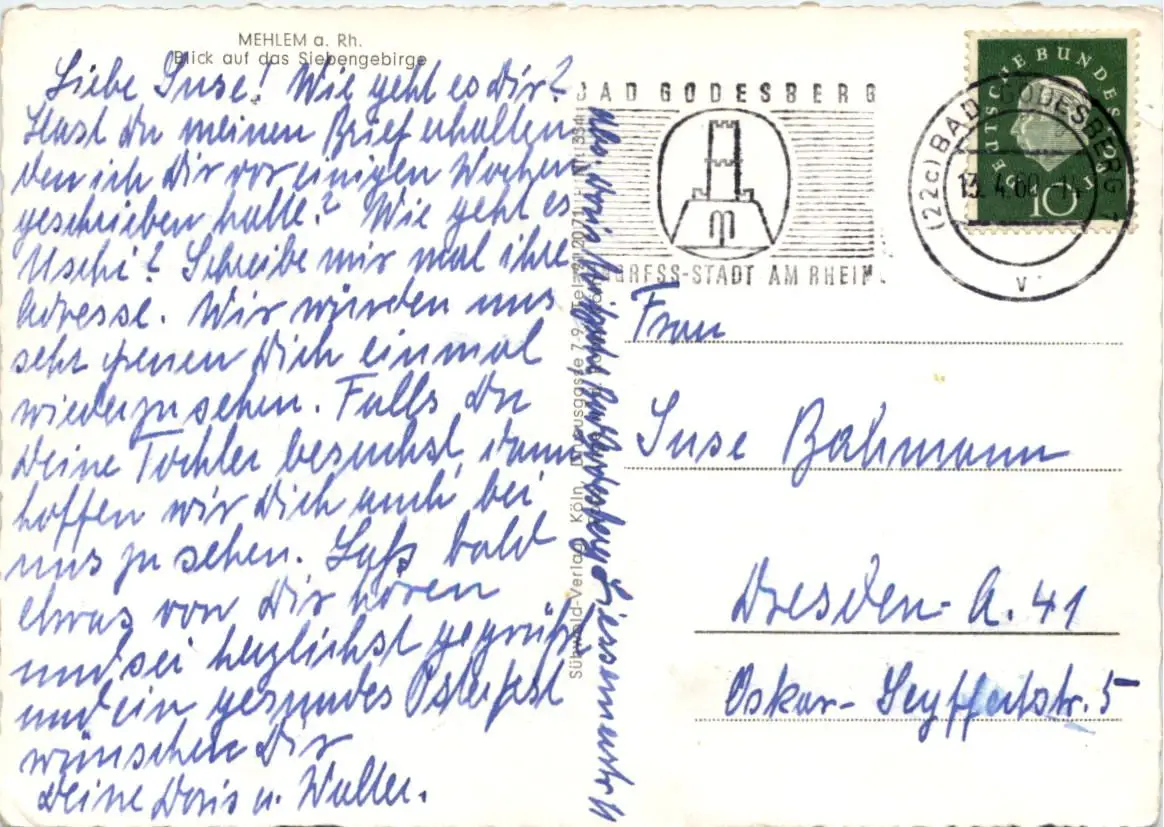 MEHLEM a. Rh.
Blick auf das Siebengebirge
Liebe Suse! Wie geht es Dir?
Hast Du meinen Brief erhalten
den ich Dir vor einigen Wochen
geschrieben hatte? Wie geht es
Uschi? Schreibe mir mal ihre
Adresse. Wir würden uns
sehr freuen Dich einmal
wiederzusehen. Falls Du
Deine Tochter besuchst, dann
hoffen wir Dich auch bei
uns zu sehen. Laß bald
etwas von Dir hören
und sei herzlichst gegrüßt
und ein gesundes Osterfest
wünschen Dir
Deine Doris u. Walter.
Südwald-Verlag, Köln
7-9, Tel.
BAD GODESBERG
KONGRESS-STADT AM RHEIN
DEUTSCHE BUNDESPOST
10
(22c) BAD GODESBERG 1
13.4.60
v
Frau
Suse Bahmann
Dresden-A. 41
Oskar-Seyffertstr. 5